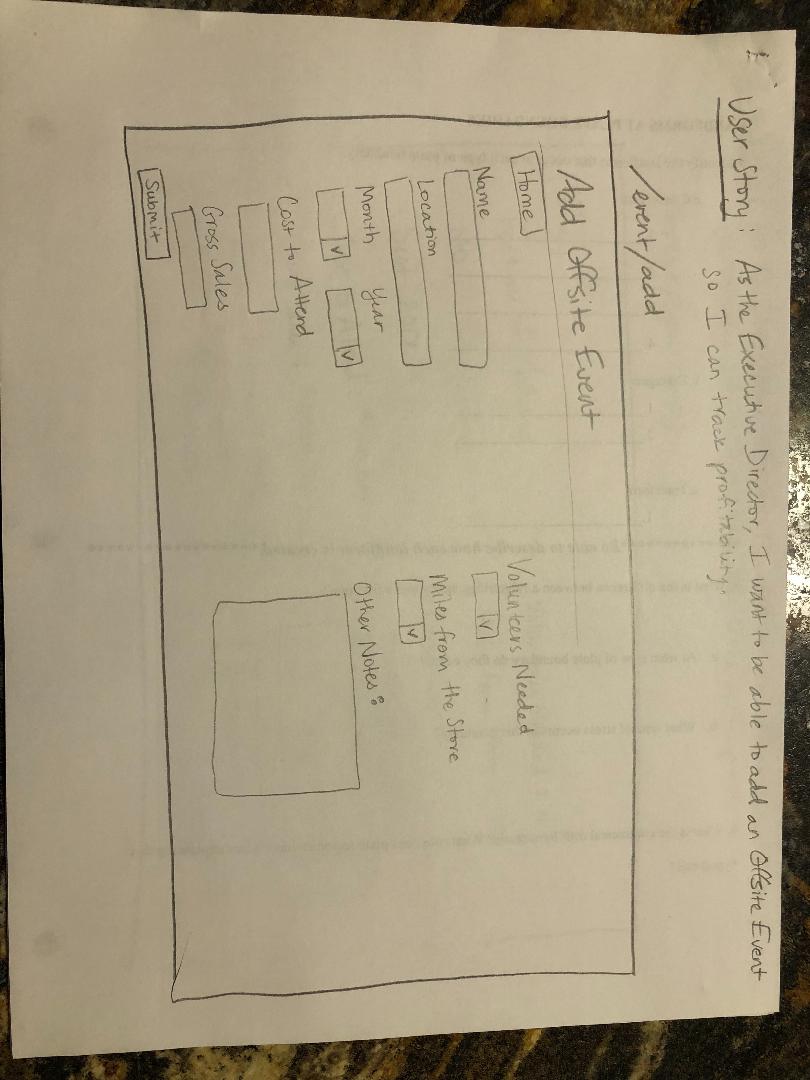 User Story: As the Executive Director, I want to be able to add an Offsite Event
so I can track profitability.
/event/add
Add Offsite Event
Home
Name
Location
Month Year
Cost to Attend
Gross Sales
Submit
Volunteers Needed
Miles from the Store
Other Notes: